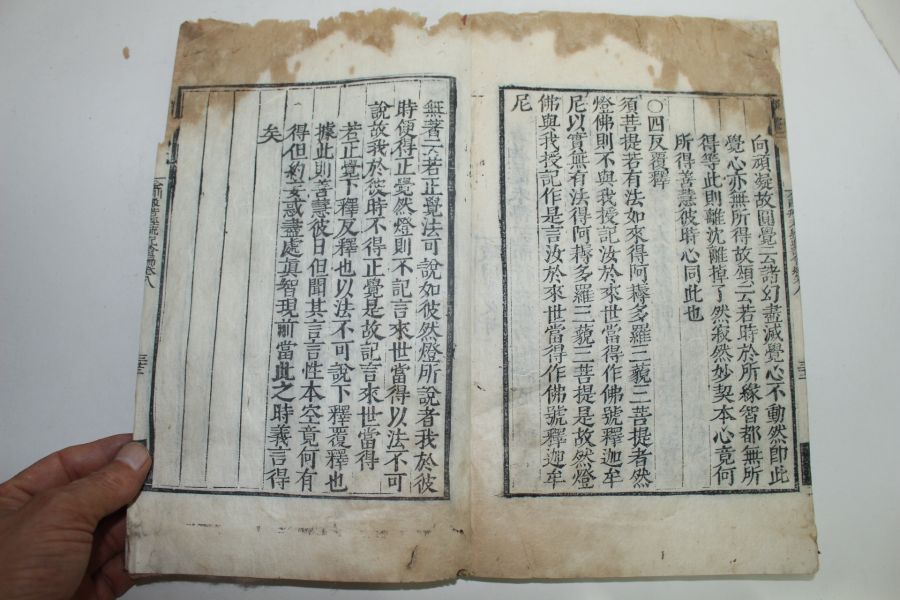 向頑凝故圓覺云諸幻盡滅覺心不動然即此
覺心亦無所得故頌云若時於所緣智都無所
得等此則離沈離掉了然寂然妙契本心竟何
所得善慧彼時心同此也
〇四反覆釋
須菩提若有法如來得阿耨多羅三藐三菩提者然
燈佛則不與我授記汝於來世當得作佛號釋迦牟
尼以實無有法得阿耨多羅三藐三菩提是故然燈
佛與我授記作是言汝於來世當得作佛號釋迦牟
尼
無著云若正覺法可說如彼然燈所說者我於彼
時便得正覺然燈則不記言來世當得以法不可
說故我於彼時不得正覺是故記言來世當得
若正覺下釋反釋也以法不可說下釋覆釋也
據此則善慧彼日但聞其言言性本空竟何有
得但約妄惑盡處眞智現前當此之時義言得
矣